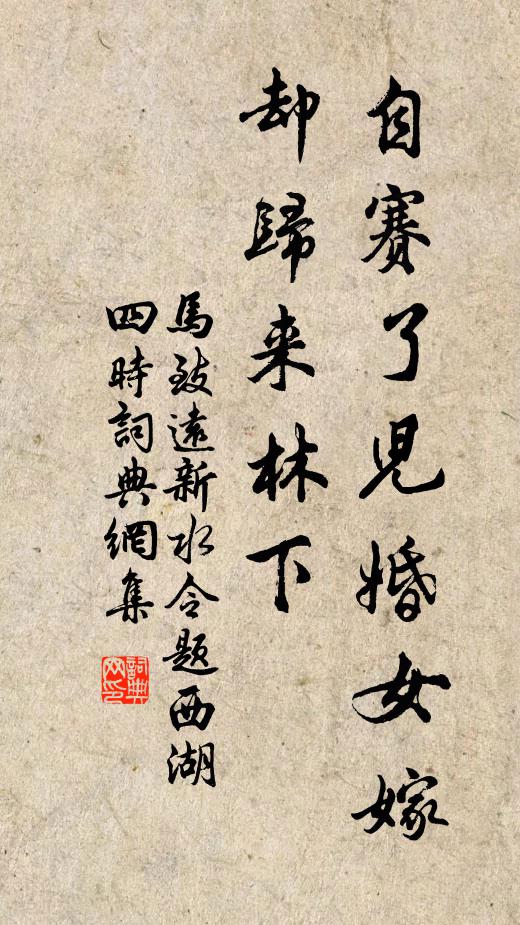 自賽了兒婚女嫁
却歸来林下
馬致遠新水令題西湖
四時詞典網集
詞典
网印